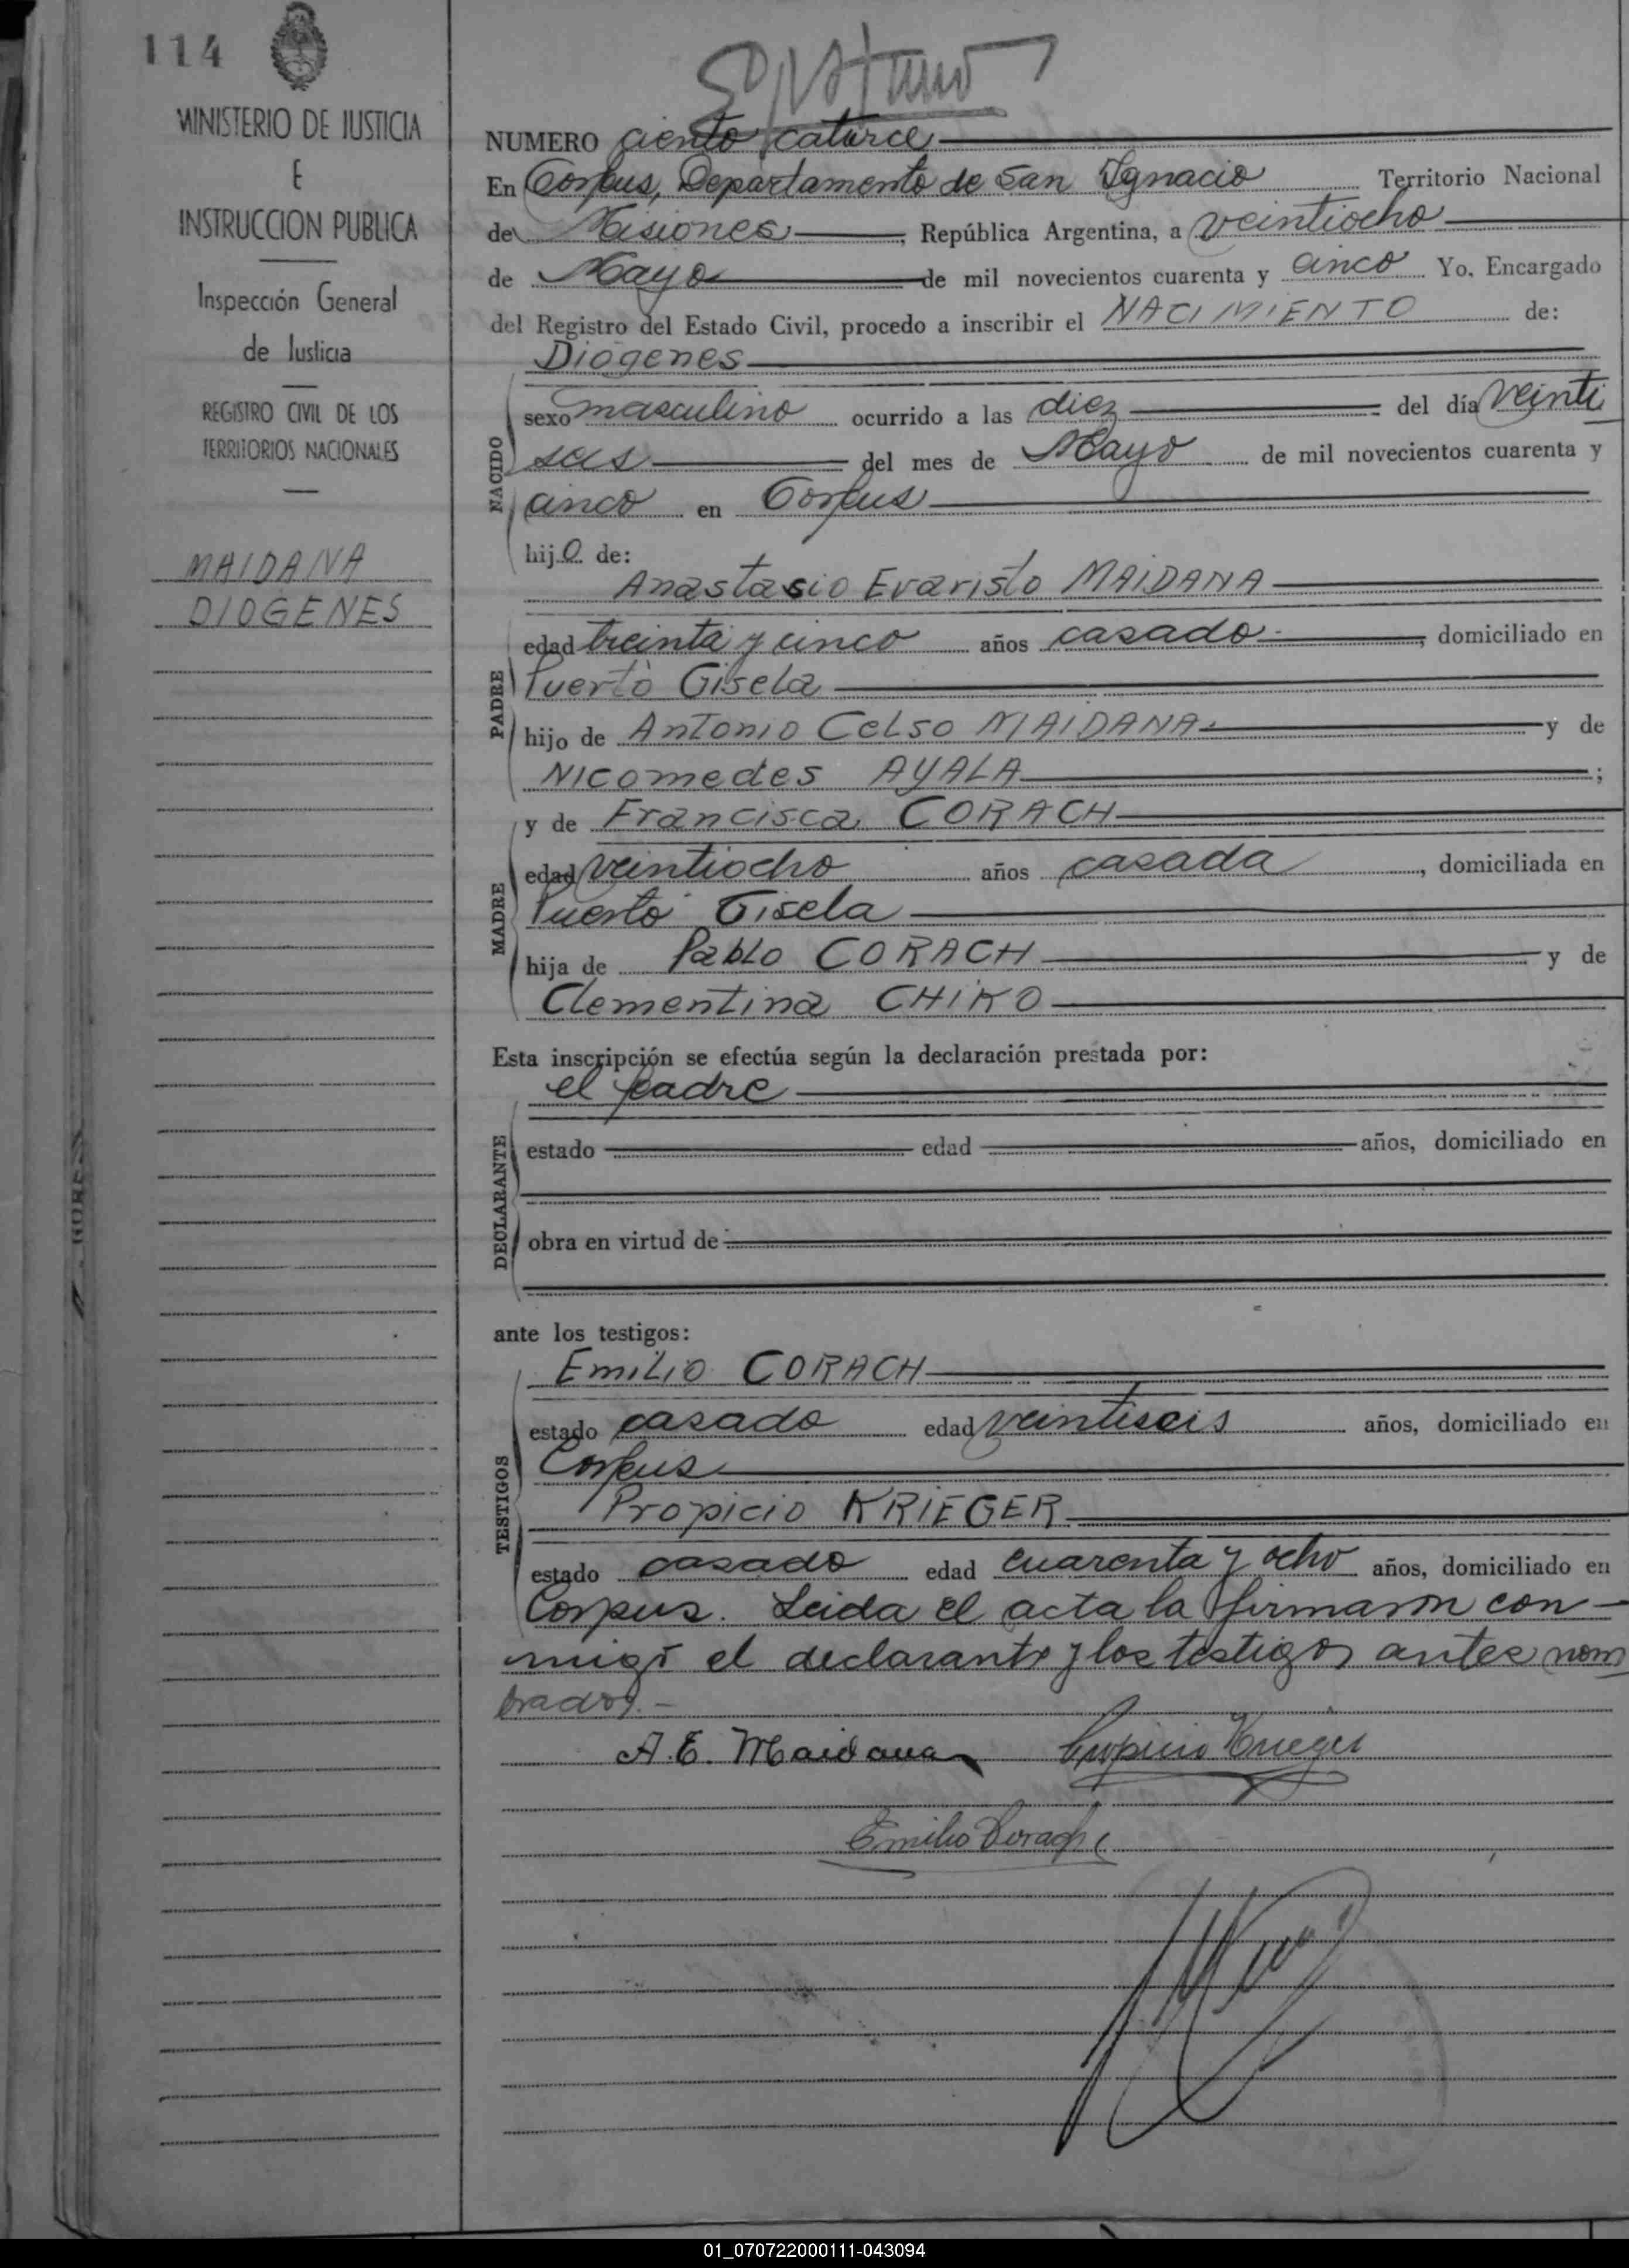 114
MINISTERIO DE JUSTICIA
E
INSTRUCCION PUBLICA
Inspección General
de Justicia
REGISTRO CIVIL DE LOS
TERRITORIOS NACIONALES
MAIDANA
DIOGENES
NUMERO ciento catorce
En Corpus, Departamento de San Ignacio Territorio Nacional
de Misiones, República Argentina, a veintiocho
de Mayo de mil novecientos cuarenta y cinco Yo, Encargado
del Registro del Estado Civil, procedo a inscribir el NACIMIENTO de:
Diógenes
NACIDO
sexo masculino ocurrido a las diez del día veinti
seis del mes de Mayo de mil novecientos cuarenta y
cinco en Corpus
hijo de:
Anastasio Evaristo MAIDANA
PADRE
edad treinta y cinco años casado, domiciliado en
Puerto Gisela
hijo de Antonio Celso MAIDANA y de
Nicomedes AYALA;
MADRE
y de Francisca CORACH
edad veintiocho años casada, domiciliada en
Puerto Gisela
hija de Pablo CORACH y de
Clementina CHIKO
Esta inscripción se efectúa según la declaración prestada por:
DECLARANTE
el padre
estado edad años, domiciliado en
obra en virtud de
ante los testigos:
TESTIGOS
Emilio CORACH
estado casado edad veintiseis años, domiciliado en
Corpus
Propicio KRIEGER
estado casado edad cuarenta y ocho años, domiciliado en
Corpus. Leida el acta la firmaron con-
migo el declarante y los testigos antes nom
brados.-
A. E. Maidana Propicio Krieger
Emilio Corach
01_070722000111-043094